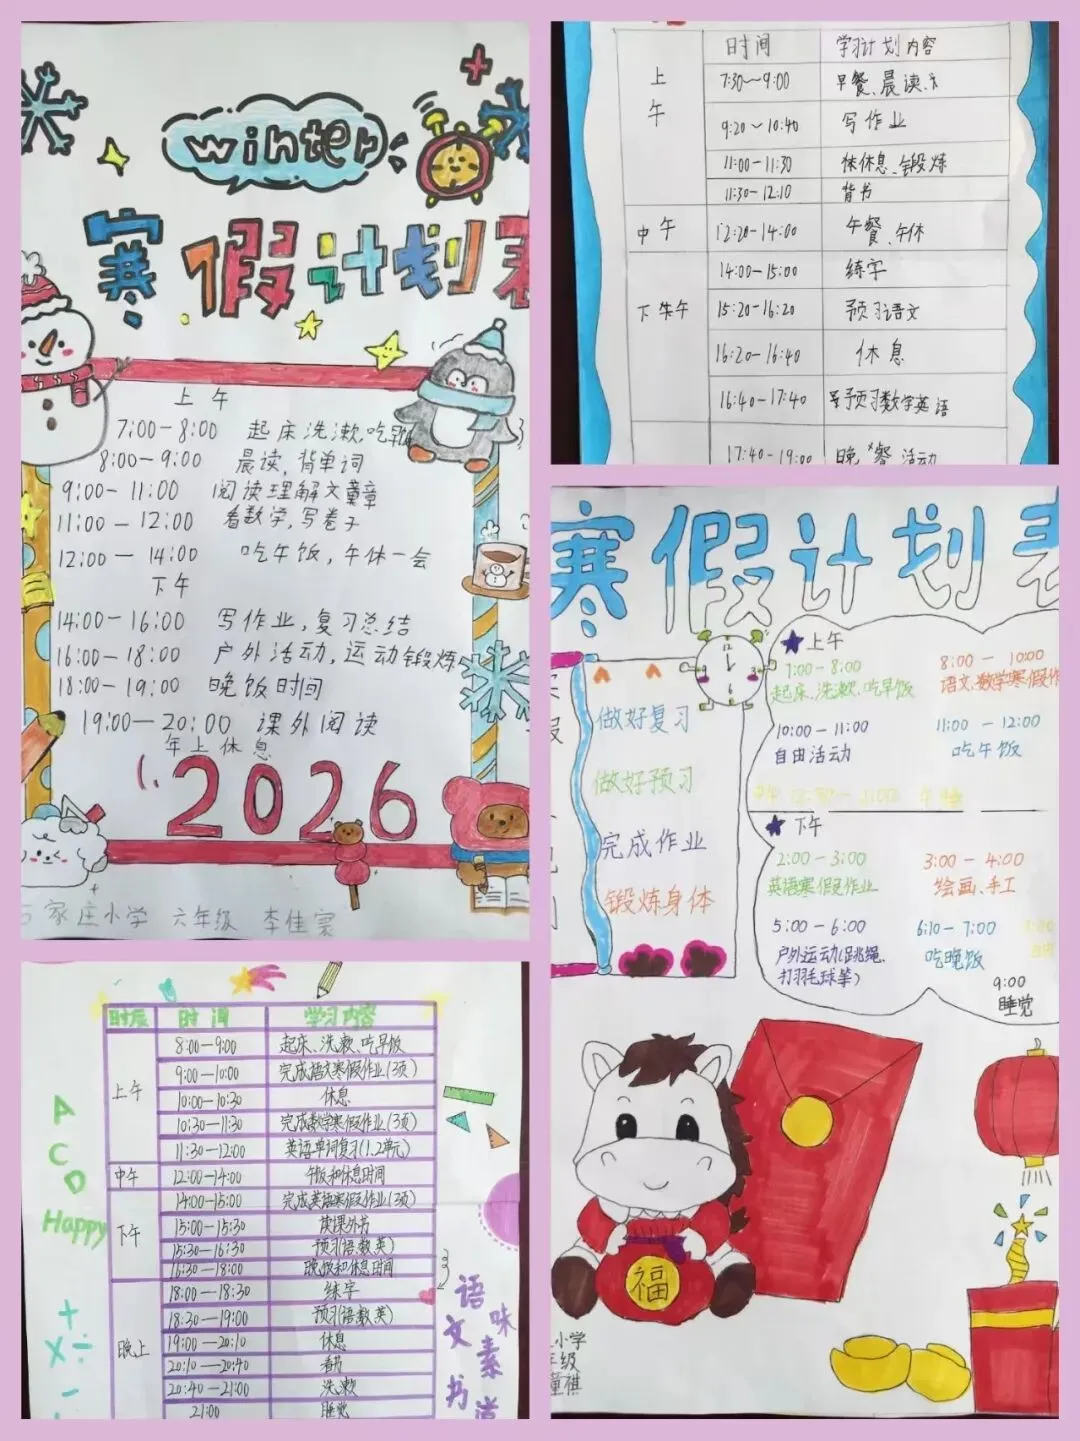 winter
寒假计划表
上午
7:00-8:00 起床洗漱,吃早饭
8:00-9:00 晨读,背单词
9:00-11:00 阅读理解文章
11:00-12:00 看数学,写卷子
12:00-14:00 吃午饭,午休一会
下午
14:00-16:00 写作业,复习总结
16:00-18:00 户外活动,运动锻炼
18:00-19:00 晚饭时间
19:00-20:00 课外阅读
年上休息
2026
家庄小学 六年级 李佳
时间 学习计划内容
上午
7:30~9:00 早餐、晨读、
9:20~10:40 写作业
11:00-11:30 休休息、锻炼
11:30-12:10 背书
中午 12:20-14:00 午餐、午休
14:00-15:00 练字
下午 15:20-16:20 预习语文
16:20-16:40 休息
16:40-17:40 预习数学英语
17:40-19:00 晚餐 活动
寒假计划表
做好复习
做好预习
完成作业
锻炼身体
上午
7:00-8:00 8:00-10:00
起床、洗漱、吃早饭 语文、数学寒假作
10:00-11:00 11:00-12:00
自由活动 吃午饭
下午
2:00-3:00 3:00-4:00
英语寒假作业 绘画、手工
5:00-6:00 6:10-7:00
户外运动(跳绳、 吃晚饭
打羽毛球等)
9:00
睡觉
福
小学
级
祺
时辰 时间 学习内容
上午
8:00-9:00 起床、洗漱、吃早饭
9:00-10:00 完成语文寒假作业(3页)
10:00-10:30 休息
10:30-11:30 完成数学寒假作业(3页)
11:30-12:00 英语单词复习(1.2单元)
中午 12:00-14:00 午饭和休息时间
下午
14:00-15:00 完成英语寒假作业(3页)
15:00-15:30 读课外书
15:30-16:30 预习(语数英)
16:30-18:00 晚饭和休息时间
晚上
18:00-18:30 练字
18:30-19:00 预习(语数英)
19:00-20:10 休息
20:10-20:40 看书
20:40-21:00 洗漱
21:00 睡觉
A
C
D
Happy
+
×÷
-
语文书
味素